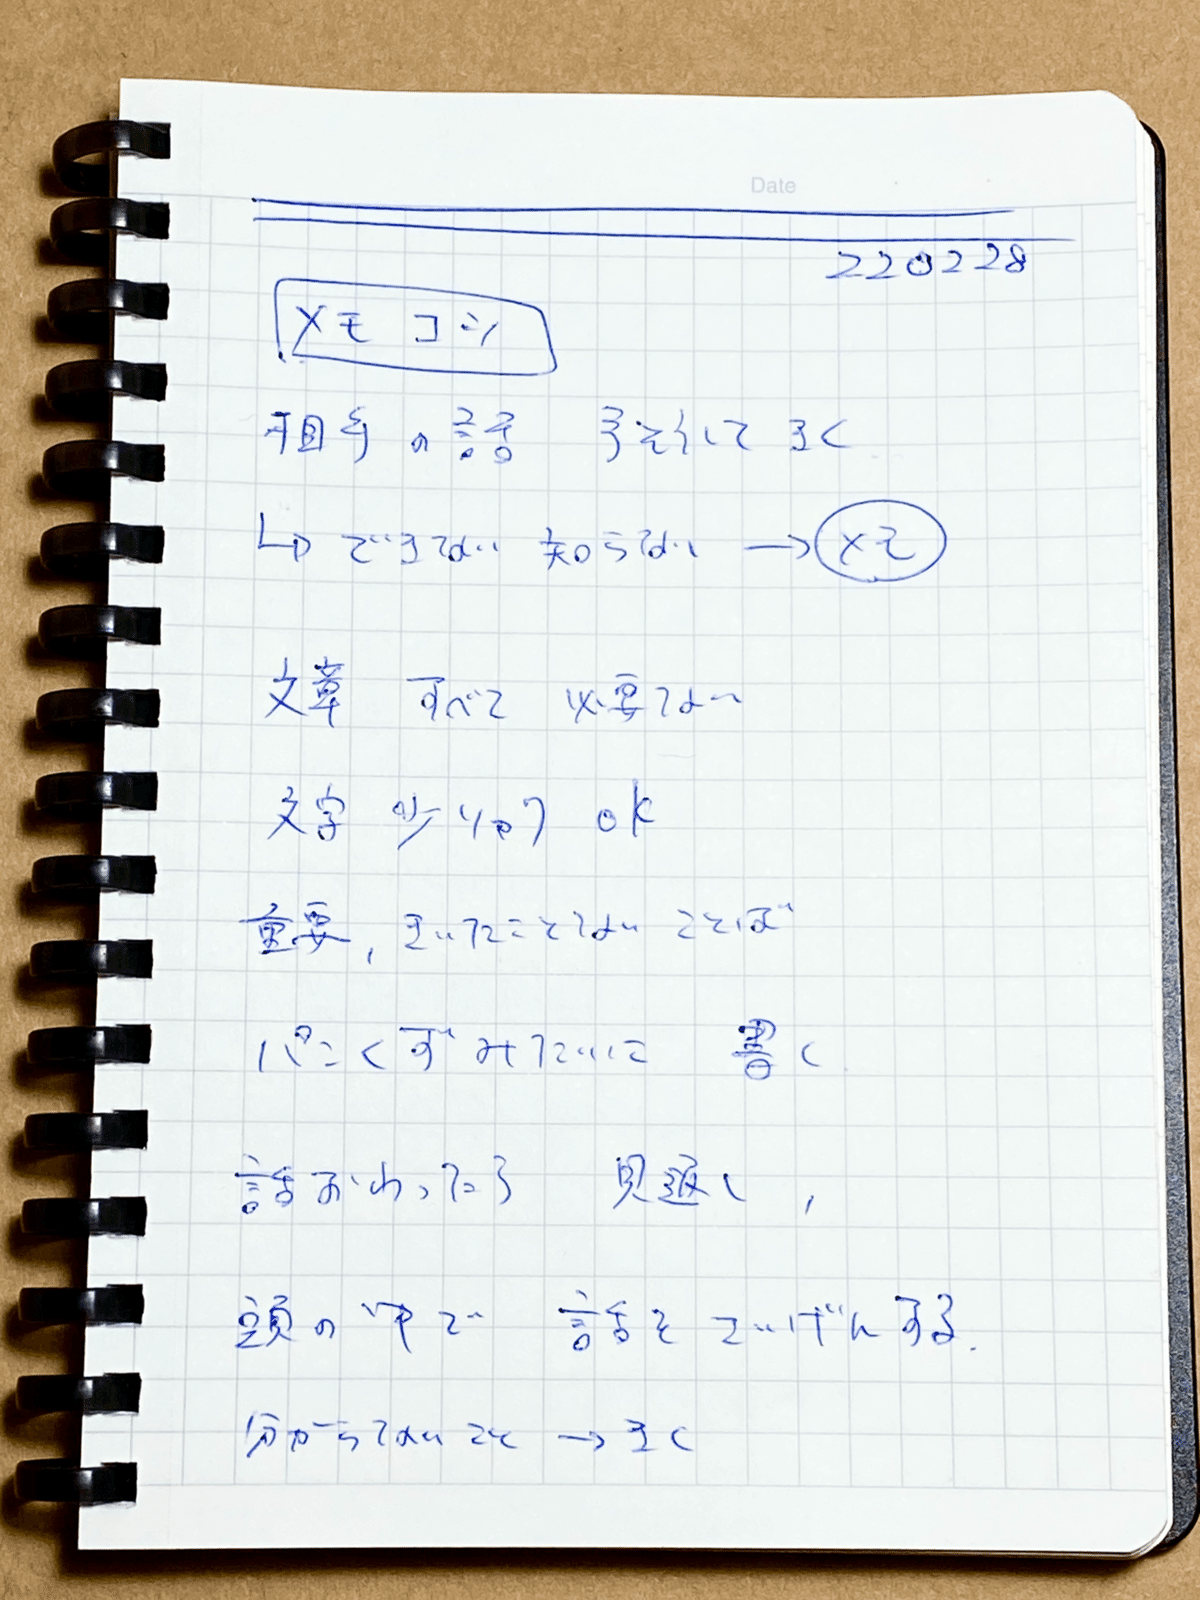 Date
220228
メモ コツ
相手の話 予そくして きく
↳ できない 知らない → メモ
文章 すべて 必要ない
文字 少しゅつ OK
重要, きいたことない ことば
パンくずみたいに 書く
話おわったら 見返し,
頭の中で 話を さいげんする.
分からないこと → きく